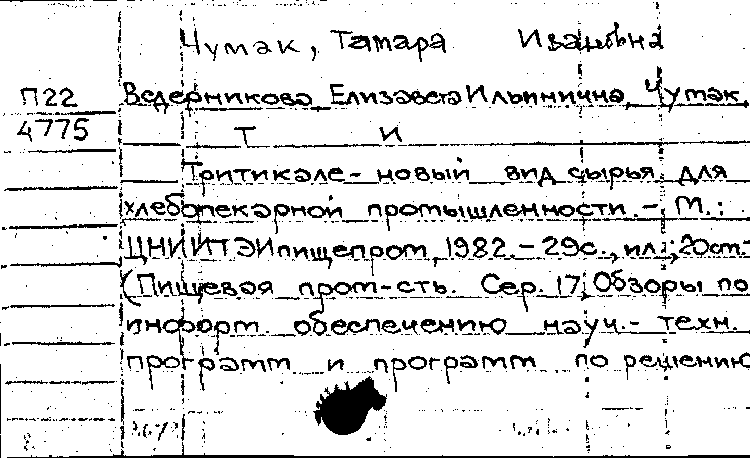 Чумак, Тамара Ивановна
П22 Ведерникова Елизавета Ильинична, Чумак,
4775 Т И
Тритикале - новый вид сырья для
хлебопекарной промышленности. - М.:
ЦНИИТЭИпищепром, 1982. - 29с., ил.; 20см.-
(Пищевая пром-сть. Сер. 17, Обзоры по
информ. обеспечению науч.- техн.
программ и программ по решению